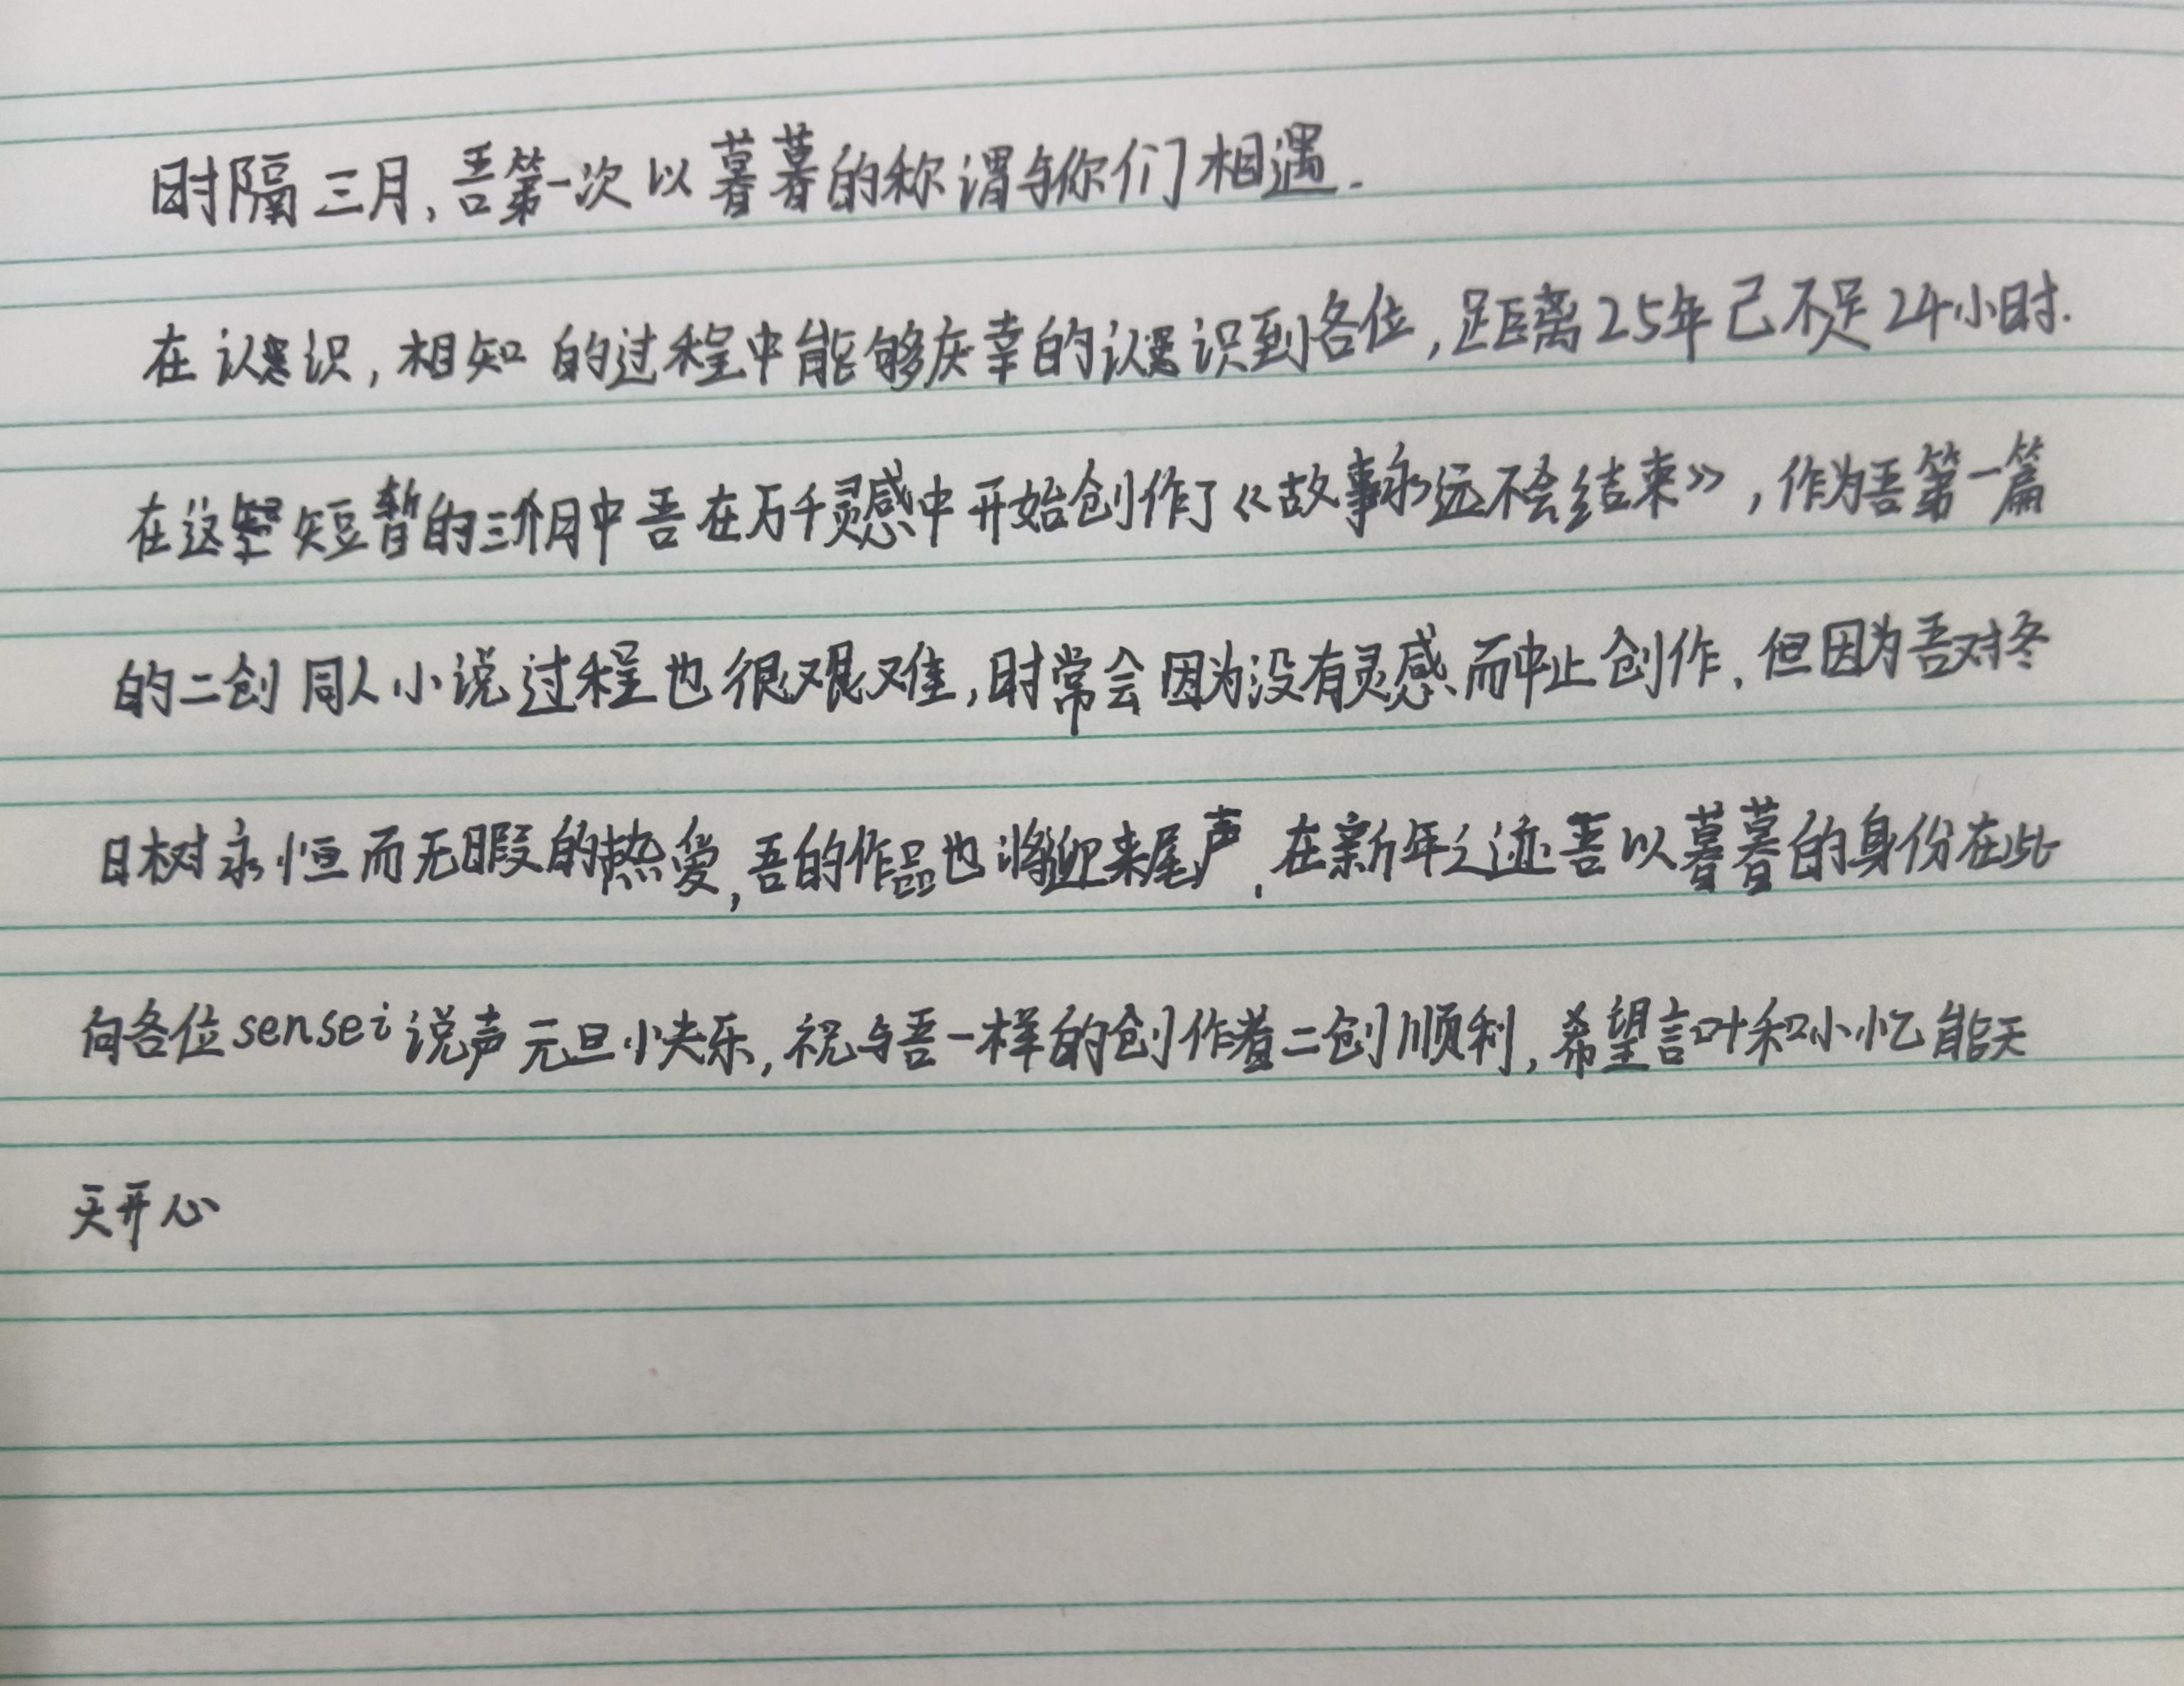 时隔三月,吾第一次以暮暮的称谓与你们相遇.
在认识,相知的过程中能够庆幸的认识到各位,距离25年己不足24小时.
在这短暂的三个月中吾在万千灵感中开始创作了《故事永远不会结束》,作为吾第一篇
的二创同人小说过程也很艰难,时常会因为没有灵感而中止创作,但因为吾对冬
日树永恒而无暇的热爱,吾的作品也将迎来尾声,在新年之迹吾以暮暮的身份在此
向各位sensei说声元旦小夫乐,祝与吾一样的创作者二创顺利,希望言叶和小忆能天
天开心